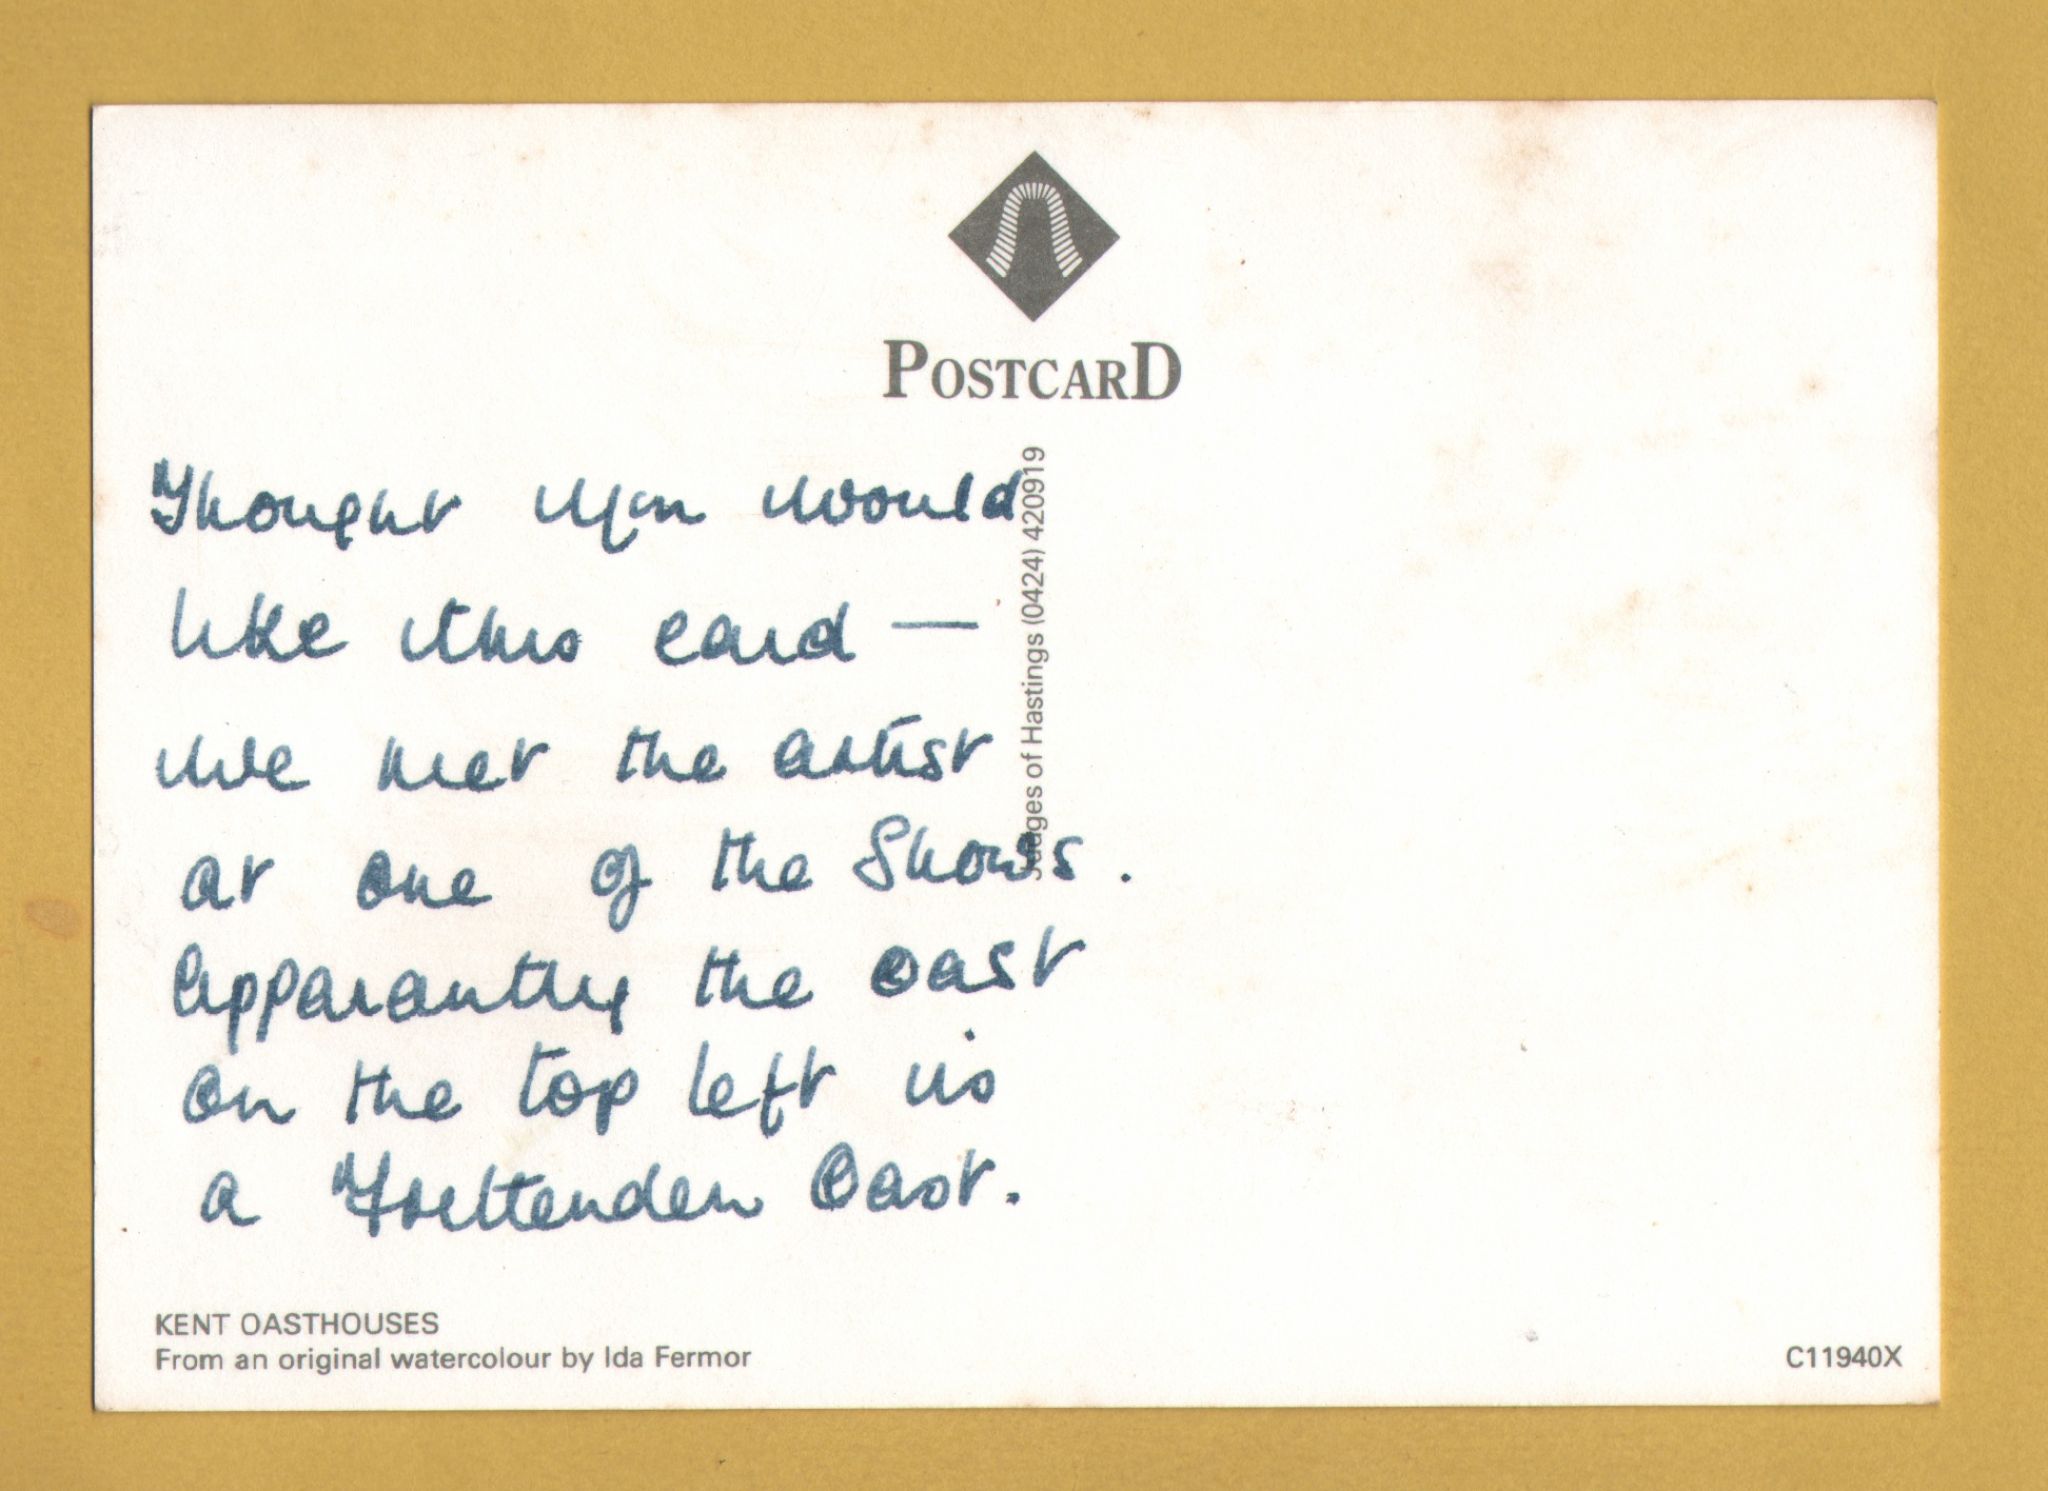 POSTCARD
Thought you would
like this card —
we met the artist
at one of the Shows.
Apparantly the oast
on the top left is
a Frittenden Oast.
Judges of Hastings (0424) 420919
KENT OASTHOUSES
From an original watercolour by Ida Fermor
C11940X